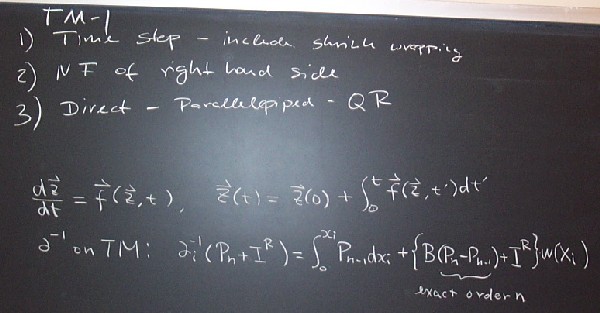 TM-1
1) Time step - include shrink wrapping
2) NF of right hand side
3) Direct - Parallelepiped - QR
dz⃗/dt = f⃗(z⃗,t), z⃗(t) = z⃗(0) + ∫₀ᵗ f⃗(z⃗,t')dt'
∂⁻¹ on TM: ∂ᵢ⁻¹(Pₙ+Iᴿ) = ∫₀^{xᵢ} Pₙ₋₁dxᵢ + {B(Pₙ-Pₙ₋₁)+Iᴿ}w(xᵢ)
exact order n